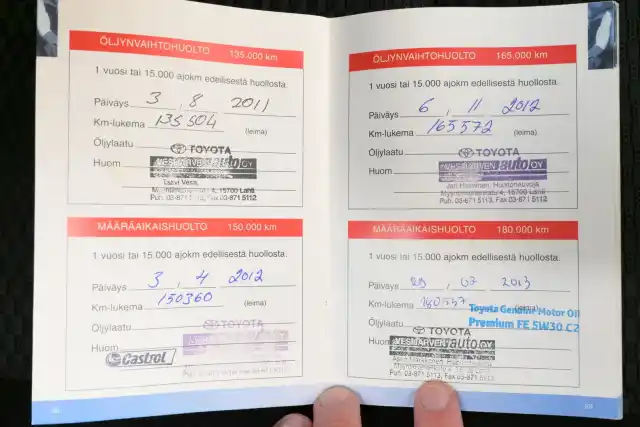 ÖLJYNVAIHTOHUOLTO 135.000 km
1 vuosi tai 15.000 ajokm edellisestä huollosta.
Päiväys 3 , 8 2011
Km-lukema 135504 (leima)
Öljylaatu
TOYOTA
Huom VESIJÄRVEN auto OY
15700 Lahti
Puh. 03-871 Fax 03-871 5112
MÄÄRÄAIKAISHUOLTO 150.000 km
1 vuosi tai 15.000 ajokm edellisestä huollosta.
Päiväys 3 , 4 2012
Km-lukema 150360 (leima)
Öljylaatu
TOYOTA
Huom
Castrol
ÖLJYNVAIHTOHUOLTO 165.000 km
1 vuosi tai 15.000 ajokm edellisestä huollosta.
Päiväys 6 , 11 2012
Km-lukema 165572 (leima)
Öljylaatu
TOYOTA
Huom VESIJÄRVEN auto OY
15700 Lahti
Puh. 03-871 5113, Fax 03-871 5112
MÄÄRÄAIKAISHUOLTO 180.000 km
1 vuosi tai 15.000 ajokm edellisestä huollosta.
Päiväys 29 , 07 2013
Km-lukema
Toyota Genuine Motor Oil
Öljylaatu Premium FE 5W30 C2
TOYOTA
Huom VESIJÄRVEN auto OY
Puh. 03-871 5113, Fax 03-871 5112